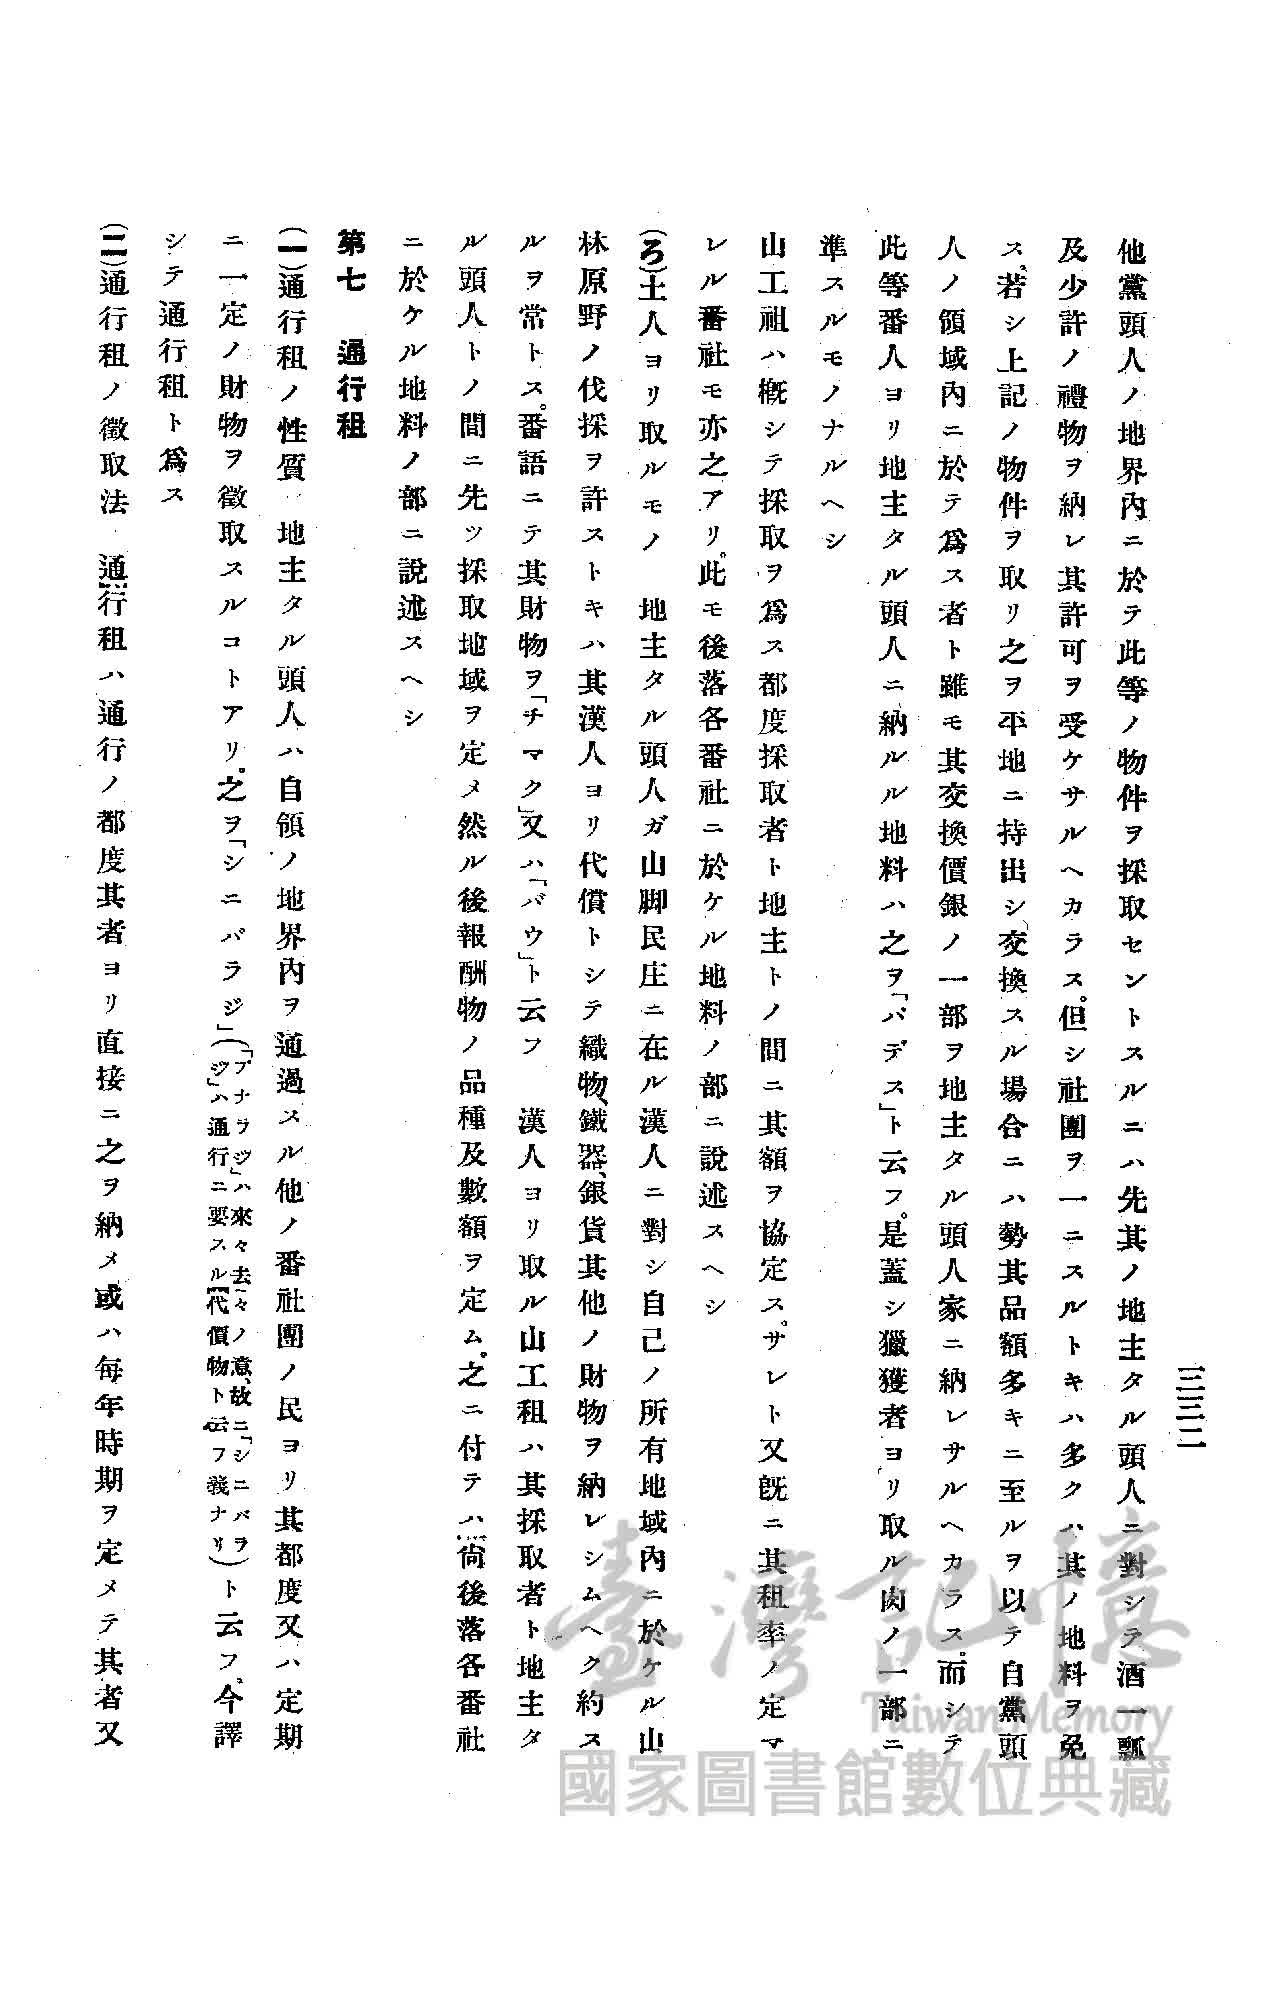 三三二
他黨頭人ノ地界內ニ於テ此等ノ物件ヲ採取セントスルニハ先其ノ地主タル頭人ニ對シテ酒一瓢
及少許ノ禮物ヲ納レ其許可ヲ受ケサルヘカラス。但シ社團ヲ一ニスルトキハ多クハ其ノ地料ヲ免
ス。若シ上記ノ物件ヲ取リ之ヲ平地ニ持出シ交換スル場合ニハ勢其品額多キニ至ルヲ以テ自黨頭
人ノ領域內ニ於テ爲ス者ト雖モ其交換價銀ノ一部ヲ地主タル頭人家ニ納レサルヘカラス。而シテ
此等番人ヨリ地主タル頭人ニ納ルル地料ハ之ヲ「パデス」ト云フ。是蓋シ獵獲者ヨリ取ル肉ノ一部ニ
準スルモノナルヘシ
山工祖ハ槪シテ採取ヲ爲ス都度採取者ト地主トノ間ニ其額ヲ協定ス。サレト又旣ニ其租率ノ定マ
レル番社モ亦之アリ。此モ後落各番社ニ於ケル地料ノ部ニ說述スヘシ
(ろ)土人ヨリ取ルモノ 地主タル頭人ガ山脚民庄ニ在ル漢人ニ對シ自己ノ所有地域內ニ於ケル山
林原野ノ伐採ヲ許ストキハ其漢人ヨリ代償トシテ織物、鐵器、銀貨其他ノ財物ヲ納レシムヘク約ス
ルヲ常トス。番語ニテ其財物ヲ「チマク」又ハ「バウ」ト云フ 漢人ヨリ取ル山工租ハ其採取者ト地主タ
ル頭人トノ間ニ先ツ採取地域ヲ定メ然ル後報酬物ノ品種及數額ヲ定ム。之ニ付テハ尙後落各番社
ニ於ケル地料ノ部ニ說述スヘシ
第七 通行租
(一)通行租ノ性質 地主タル頭人ハ自領ノ地界內ヲ通過スル他ノ番社團ノ民ヨリ其都度又ハ定期
ニ一定ノ財物ヲ徵取スルコトアリ。之ヲ「シニバラジ」(「プナラジ」ハ來々去々ノ意、故ニ「シニバラジ」ハ通行ニ要スル代價物ト云フ義ナリ)ト云フ。今譯
シテ通行租ト爲ス
(二)通行租ノ徵取法 通行租ハ通行ノ都度其者ヨリ直接ニ之ヲ納メ或ハ每年時期ヲ定メテ其者又
臺灣記憶
Taiwan Memory
國家圖書館數位典藏